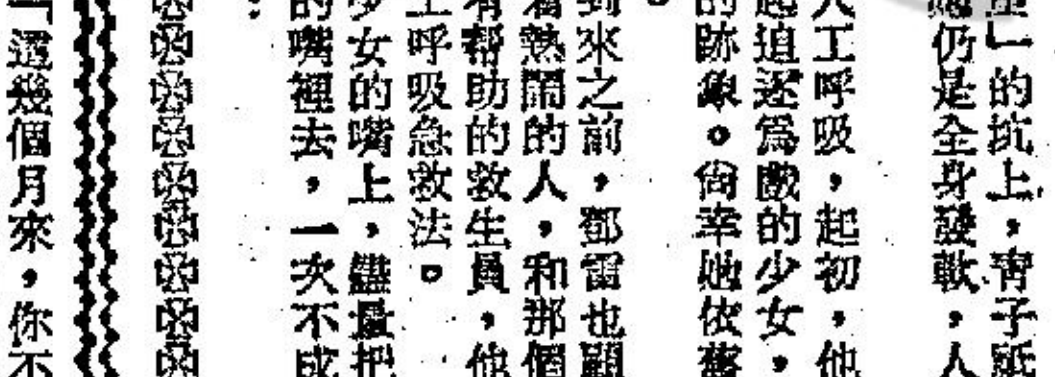 的炕上，靑子
仍是全身發軟，人
人工呼吸，起初，他
起追逐爲戲的少女，
的跡象。尙幸她依舊
到來之前，鄧雷也顧
着熱鬧的人，和那個
有帮助的救生員，他
工呼吸急救法。
少女的嘴上，儘量把
的嘴裡去，一次不成
「這幾個月來，你不